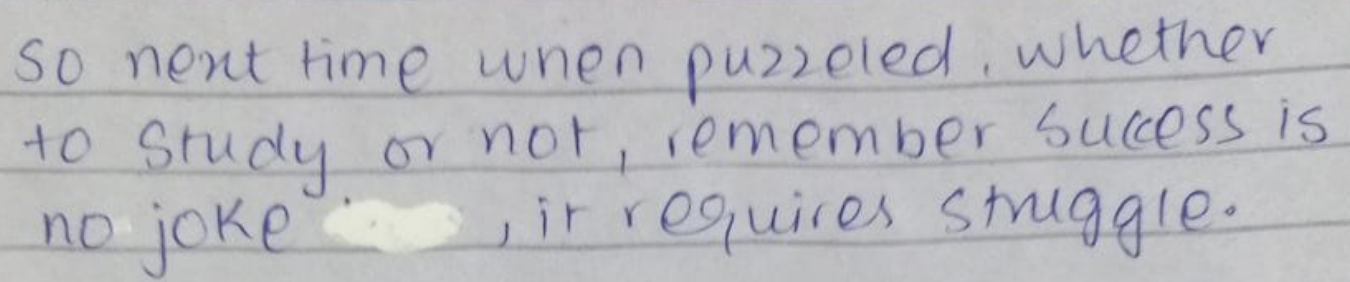 So next time when puzzeled, whether
to study or not, remember success is
no joke , it requires struggle.